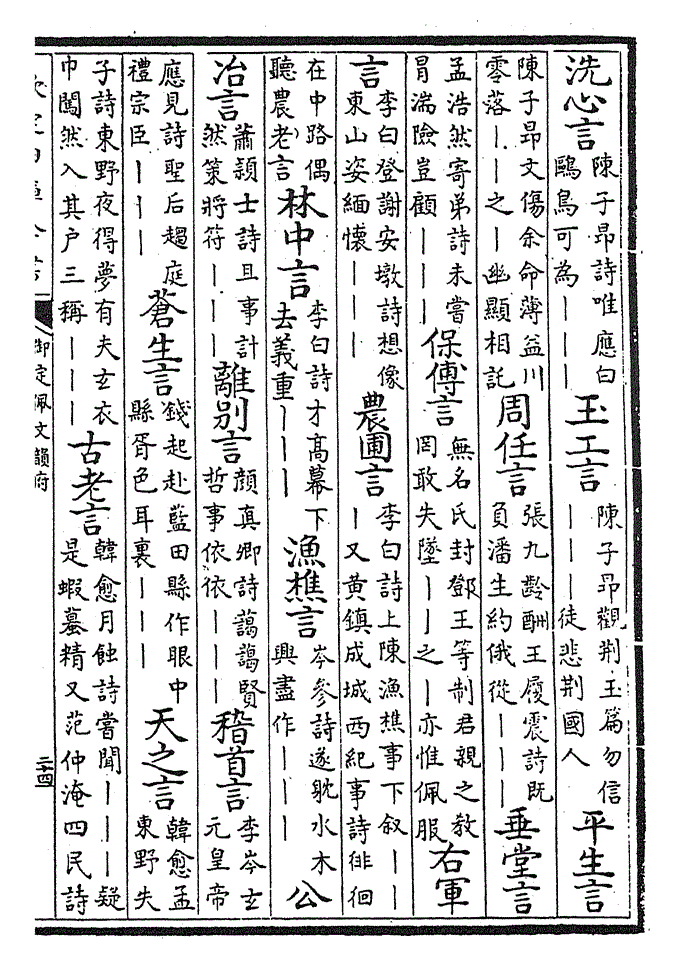 洗心言 陳子昂詩唯應白鷗鳥可為｜｜｜ 玉工言 陳子昂觀荆玉篇勿信｜｜｜徒悲荆國人 平生言
陳子昂文傷余命薄益川零落｜｜之｜幽顯相託 周任言 張九齡酬王履震詩既負潘生約俄從｜｜｜ 垂堂言
孟浩然寄弟詩未嘗冒湍險豈顧｜｜｜ 保傅言 無名氏封鄧王等制君親之教罔敢失墜｜｜之｜亦惟佩服 右軍
言 李白登謝安墩詩想像東山姿緬懷｜｜｜ 農圃言 李白詩上陳漁樵事下叙｜｜｜又黄鎮成城西紀事詩徘徊
在中路偶聽農老言 林中言 李白詩才高幕下去義重｜｜｜ 漁樵言 岑參詩遂躭水木興盡作｜｜｜ 公
冶言 蕭頴士詩且事計然策將符｜｜｜ 離别言 顔真卿詩藹藹賢哲事依依｜｜｜ 稽首言 李岑玄元皇帝
應見詩聖后趨庭禮宗臣｜｜｜ 蒼生言 錢起赴藍田縣作眼中縣胥色耳裏｜｜｜ 天之言 韓愈孟東野失
子詩東野夜得夢有夫玄衣巾闖然入其户三稱｜｜｜ 古老言 韓愈月蝕詩嘗聞｜｜｜疑是蝦蟇精又范仲淹四民詩
欽定四庫全書 御定佩文韻府 二十四